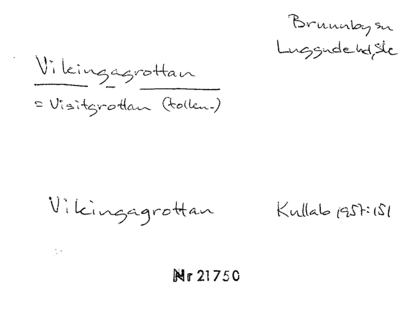 Brunnby sn
Luggude hd, Ske
Vikingagrottan
= Visitgrottan (tolkn.)
Vikingagrottan
Kullab 1957:151
Nr 21750